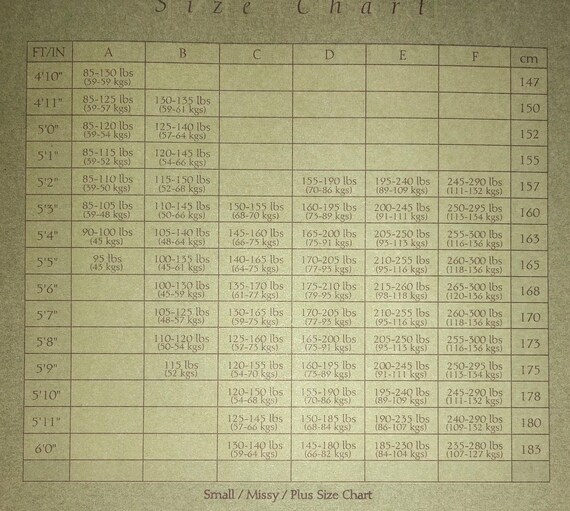 Size Chart
FT/IN A B C D E F cm
4'10" 85-130 lbs 147
(39-59 kgs)
4'11" 85-125 lbs 130-135 lbs 150
(39-57 kgs) (59-61 kgs)
5'0" 85-120 lbs 125-140 lbs 152
(39-54 kgs) (57-64 kgs)
5'1" 85-115 lbs 120-145 lbs 155
(39-52 kgs) (54-66 kgs)
5'2" 85-110 lbs 115-150 lbs 155-190 lbs 195-240 lbs 245-290 lbs 157
(39-50 kgs) (52-68 kgs) (70-86 kgs) (89-109 kgs) (111-132 kgs)
5'3" 85-105 lbs 110-145 lbs 150-155 lbs 160-195 lbs 200-245 lbs 250-295 lbs 160
(39-48 kgs) (50-66 kgs) (68-70 kgs) (73-89 kgs) (91-111 kgs) (113-134 kgs)
5'4" 90-100 lbs 105-140 lbs 145-160 lbs 165-200 lbs 205-250 lbs 255-300 lbs 163
(45 kgs) (48-64 kgs) (66-73 kgs) (75-91 kgs) (93-113 kgs) (116-136 kgs)
5'5" 95 lbs 100-135 lbs 140-165 lbs 170-205 lbs 210-255 lbs 260-300 lbs 165
(43 kgs) (45-61 kgs) (64-75 kgs) (77-93 kgs) (95-116 kgs) (118-136 kgs)
5'6" 100-130 lbs 135-170 lbs 175-210 lbs 215-260 lbs 265-300 lbs 168
(45-59 kgs) (61-77 kgs) (79-95 kgs) (98-118 kgs) (120-136 kgs)
5'7" 105-125 lbs 130-165 lbs 170-205 lbs 210-255 lbs 260-300 lbs 170
(48-57 kgs) (59-75 kgs) (77-93 kgs) (95-116 kgs) (118-136 kgs)
5'8" 110-120 lbs 125-160 lbs 165-200 lbs 205-250 lbs 255-300 lbs 173
(50-54 kgs) (57-73 kgs) (75-91 kgs) (93-113 kgs) (116-136 kgs)
5'9" 115 lbs 120-155 lbs 160-195 lbs 200-245 lbs 250-295 lbs 175
(52 kgs) (54-70 kgs) (73-89 kgs) (91-111 kgs) (113-134 kgs)
5'10" 120-150 lbs 155-190 lbs 195-240 lbs 245-290 lbs 178
(54-68 kgs) (70-86 kgs) (89-109 kgs) (111-132 kgs)
5'11" 125-145 lbs 150-185 lbs 190-235 lbs 240-290 lbs 180
(57-66 kgs) (68-84 kgs) (86-107 kgs) (109-132 kgs)
6'0" 130-140 lbs 145-180 lbs 185-230 lbs 235-280 lbs 183
(59-64 kgs) (66-82 kgs) (84-104 kgs) (107-127 kgs)
Small / Missy / Plus Size Chart